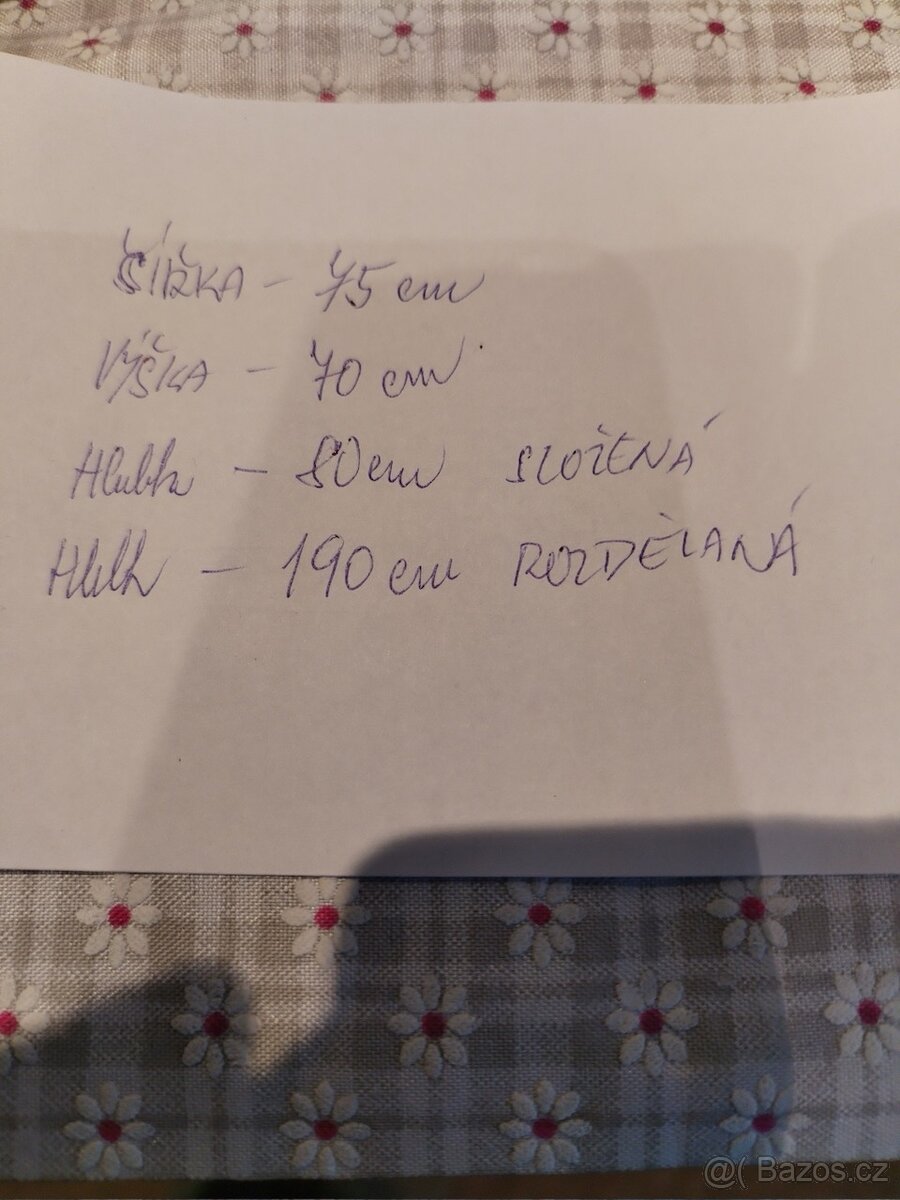 ŠÍŘKA - 75 cm
VÝŠKA - 70 cm
Hlubk - 80 cm SLOŽENÁ
Hlubk - 190 cm ROZDĚLANÁ
@( Bazos.cz